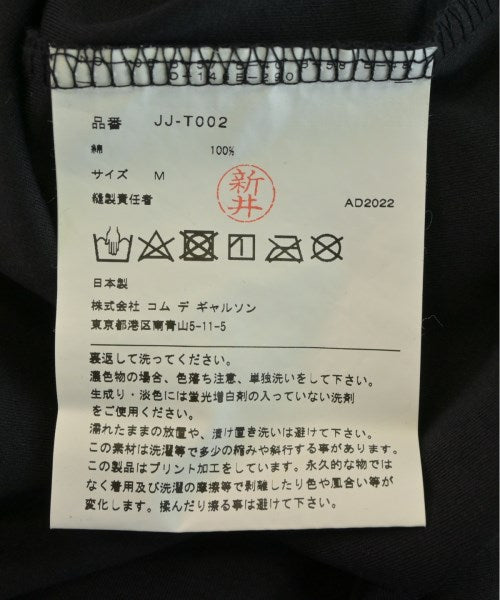 品番 JJ-T002
綿 100%
サイズ M
新井
縫製責任者
AD2022
日本製
株式会社 コム デ ギャルソン
東京都港区南青山5-11-5
裏返して洗ってください。
濃色物の場合、色落ち注意、単独洗いをして下さい。
生成り・淡色には蛍光増白剤の入っていない洗剤
をご使用ください。
濡れたままの放置や、漬け置き洗いは避けて下さい。
この素材は洗濯等で多少の縮みや斜行する事があります。
この製品はプリント加工をしています。永久的な物では
なく着用及び洗濯の摩擦等で剥離したり色や風合い等が
変化します。揉んだり擦る事は避けて下さい。